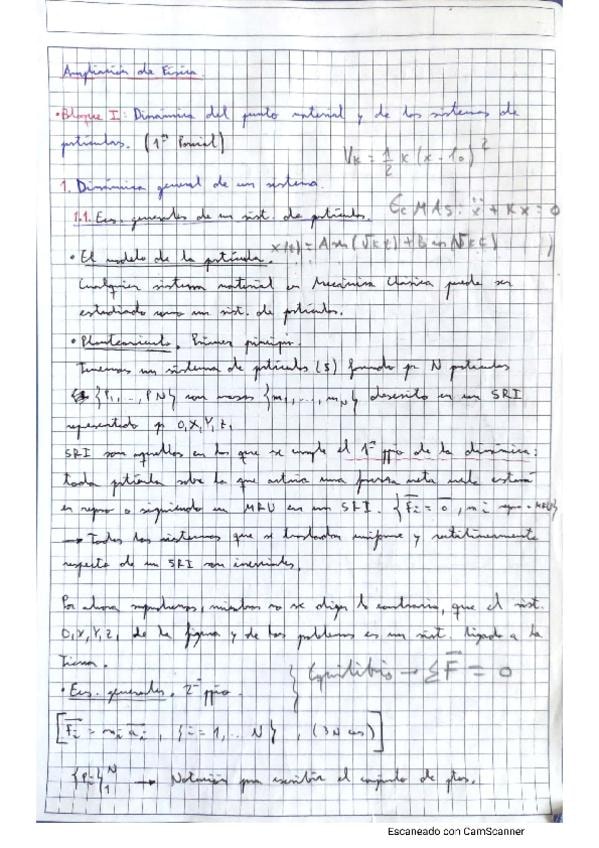 Ampliación de Física.
• Bloque I: Dinámica del punto material y de los sistemas de
partículas. (1er Parcial)
V_K = 1/2 K (x - l_0)^2
1. Dinámica general de un sistema.
1.1. Ecs. generales de un sist. de partículas.
Ec MAS: ẍ + Kx = 0
x(t) = A sen(√K t) + B cos(√K t)
• El modelo de la partícula.
Cualquier sistema material en Mecánica Clásica puede ser
estudiado como un sist. de partículas.
• Planteamiento. Primer principio.
Tenemos un sistema de partículas (S) formado por N partículas
{P_1, ..., P_N} con masas {m_1, ..., m_N} descrito en un SRI
representado p 0,X,Y,Z.
SRI son aquellos en los que se cumple el 1er ppio de la dinámica:
toda partícula sobre la que actúa una fuerza neta nula estará
en reposo o siguiendo un MRU en un SRI. {F_i = 0, m_i repo o MRU}
→ Todos los sistemas que se trasladan uniforme y rectilíneamente
respecto de un SRI son inerciales.
Por ahora supondremos, mientras no se diga lo contrario, que el sist.
0,X,Y,Z, de la figura y de los problemas es un sist. ligado a la
Tierra.
} Equilibrio → ΣF̄ = 0
• Ecs. generales. 2º ppio.
[F̄_i = m_i ā_i , {i = 1, ... N} , (3N ecs)]
{P_i}_1^N → Notación para escribir el conjunto de ptos.
Escaneado con CamScanner